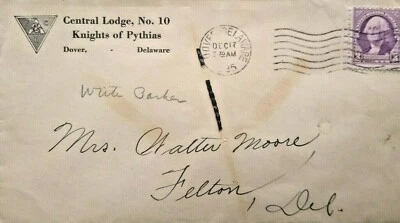 Central Lodge, No. 10
Knights of Pythias
Dover, - Delaware
DOVER, DELAWARE
DEC 17
AM
35
Write Barker
Mrs. Walter Moore
Felton,
Del.